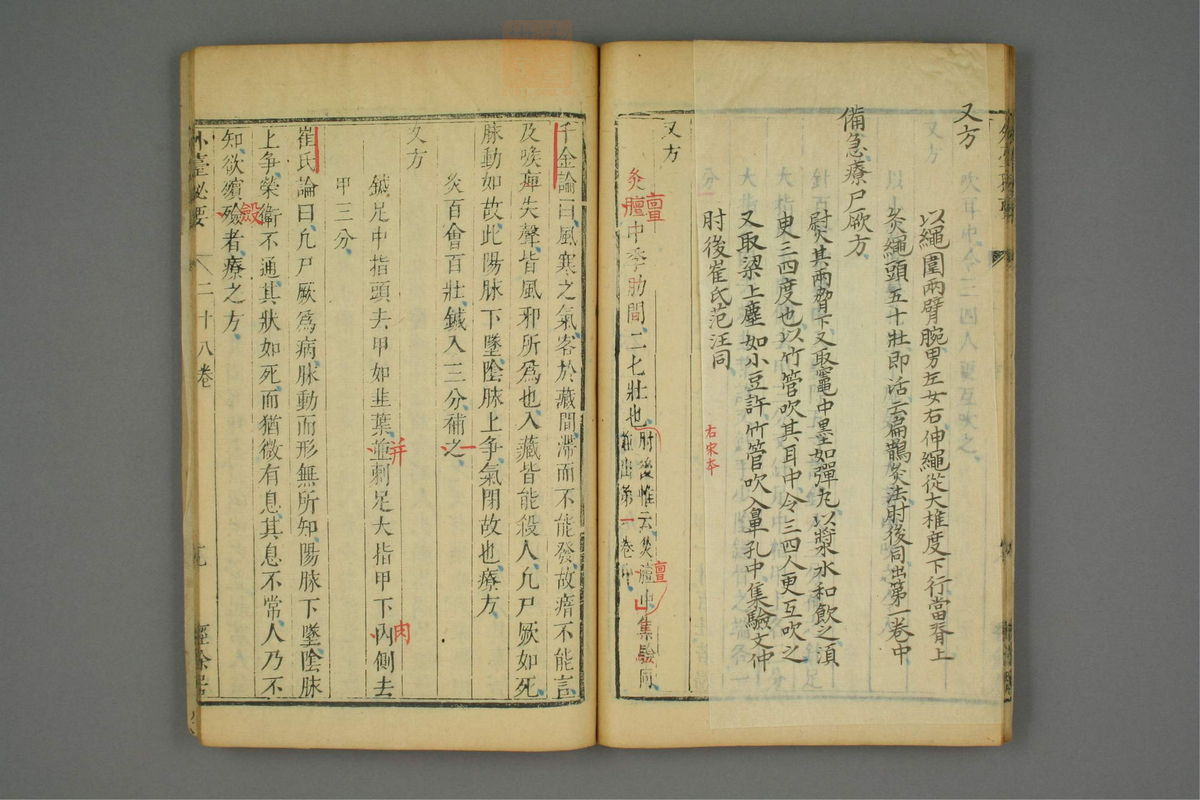 又方
以繩圍兩臂腕男左女右伸繩從大椎度下行當脊上
灸繩頭五十壯即活云扁鵲灸法肘後同出第一卷中
備急療尸厥方
熨其兩脅下又取竈中墨如彈丸以漿水和飲之須
臾三四度也以竹管吹其耳中令三四人更互吹之
又取梁上塵如小豆許竹管吹入鼻孔中集驗文仲
肘後崔氏范汪同
右宋本
又方
灸膻中季肋間、二七壯也、肘後惟云灸膻中集驗同
並出第一卷中
千金論曰、風寒之氣、客於藏間、滯而不能發、故瘖不能言、
及喉痺失聲、皆風邪所爲也、入藏皆能殺人、凡尸厥如死、
脉動如故、此陽脉下墜、陰脉上爭、氣閉故也、療方、
灸百會百壯、鍼入三分、補之、
又方
鍼足中指頭去甲如韭葉、並刺足大指甲下內側去
甲三分、
崔氏論曰、凡尸厥爲病、脉動而形無所知、陽脉下墜、陰脉
上爭、榮衛不通、其狀如死、而猶微有息、其息不常、人乃不
知、欲殯殮者、療之方、
外臺祕要
二十八卷
經餘居